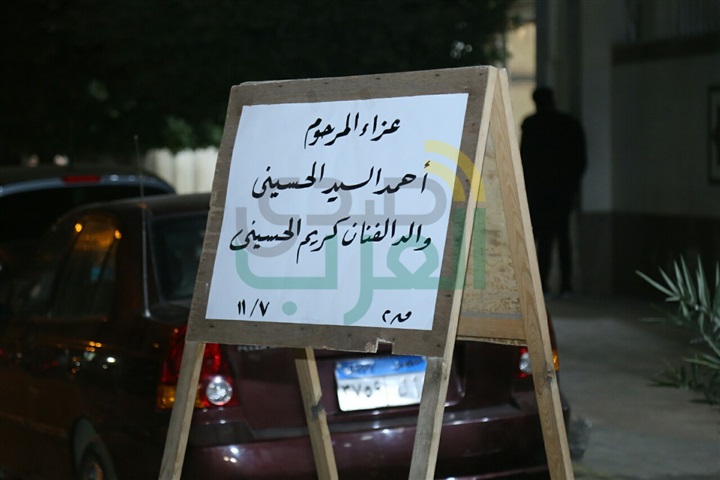 عزاء المرحوم
أحمد السيد الحسيني
والد الفنان كريم الحسيني
١١/٧
صدى
العرب